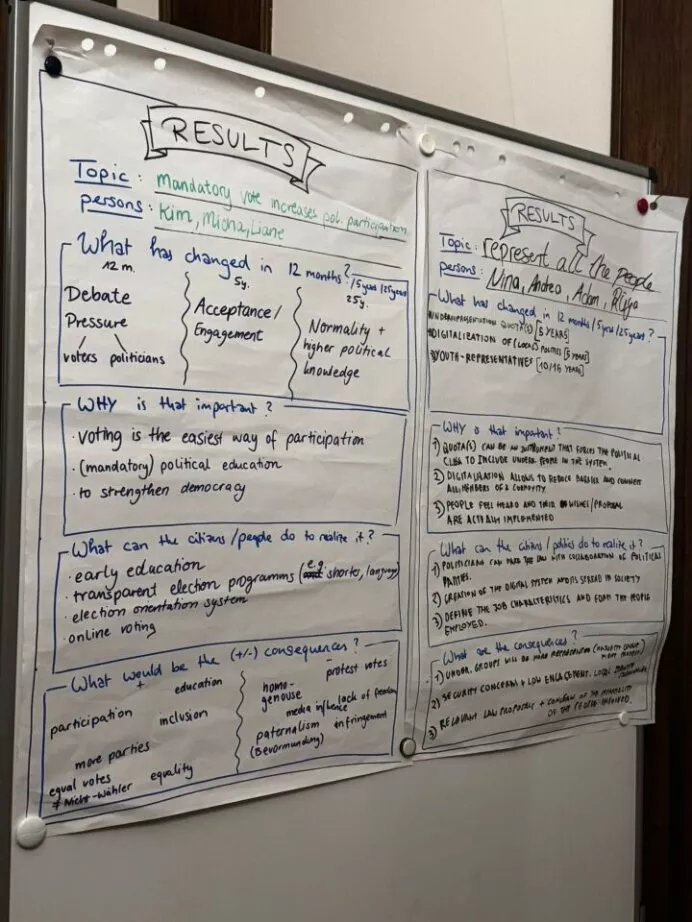 RESULTS
Topic: Mandatory vote increases pol. participation
persons: Kim, Micha, Liane
What has changed in 12 months /5years /25years?
12 m.
Debate
Pressure
voters politicians
5y.
Acceptance/
Engagement
25y.
Normality +
higher political
knowledge
WHY is that important?
· voting is the easiest way of participation
· (mandatory) political education
· to strengthen democracy
What can the citizens/people do to realize it?
· early education
· transparent election programms (e.g. shorter, language)
· election orientation system
· online voting
What would be the (+/-) consequences?
+
education
participation
inclusion
more parties
equal votes
≠ Nicht-Wähler
equality
-
protest votes
homo-
genouse
lack of freedom
media influence
paternalism
infringement
(Bevormundung)
RESULTS
Topic: represent all the people
persons: Nina, Andrea, Adam,
What has changed in 12 months /5years /25years?
QUOTA(S) [5 YEARS]
DIGITALIZATION OF (LOCAL) POLITICS [5 YEARS]
YOUTH-REPRESENTATIVES [10/15 YEARS]
WHY is that important?
1) QUOTA(S) CAN BE AN INSTRUMENT THAT FORCES THE POLITICAL
TO INCLUDE UNDER. PEOPLE IN THE SYSTEM.
2) DIGITALIZATION ALLOWS TO REDUCE BARRIER AND CONNECT
ALL MEMBERS OF A
3) PEOPLE FEEL HEARD AND THEIR WISHES/PROPOSAL
ARE ACTUALLY IMPLEMENTED
What can the citizens / politics do to realize it?
1) POLITICIANS CAN MAKE THE LAW WITH COLLABORATION OF POLITICAL
PARTIES.
2) CREATION OF THE DIGITAL SYSTEM AND ITS SPREAD IN SOCIETY
3) DEFINE THE JOB CHARACTERISTICS AND THE PEOPLE
EMPLOYED.
What are the consequences?
1) UNDER. GROUPS WILL BE MORE REPRESENTED
2) SECURITY CONCERNS + LOW ENGAGEMENT. LOCAL
3) RELEVANT LAW PROPOSALS +
OF THE PEOPLE